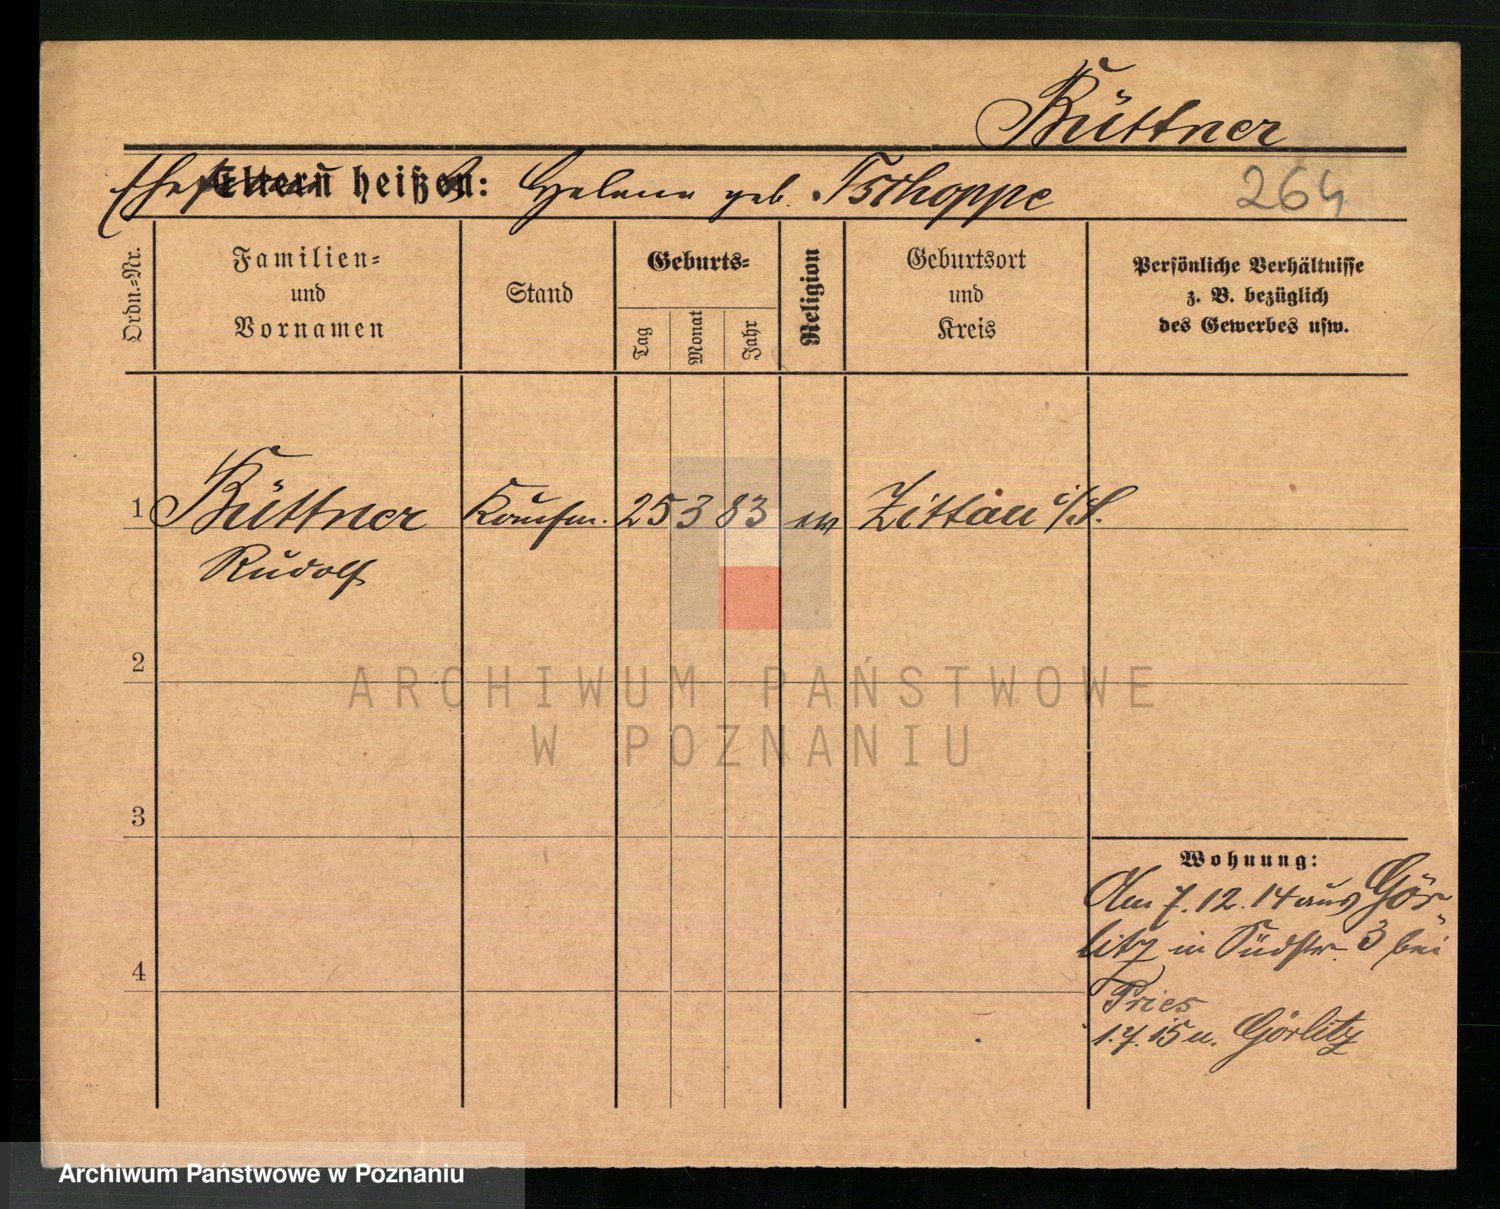 Büttner
Ehefrau Eltern heißen: Helene geb. Tschoppe
264
Ordn.-Nr.
Familien-
und
Vornamen
Stand
Geburts-
Tag
Monat
Jahr
Religion
Geburtsort
und
Kreis
Persönliche Verhältnisse
z. B. bezüglich
des Gewerbes usw.
1 Büttner Kaufm. 25 3 83 ev Zittau i/S.
Rudolf
2
3
4
Wohnung:
Am 7.12.14 aus Gör-
litz in Südstr. 3 bei
Pries
1.7.15 n. Görlitz
ARCHIWUM PAŃSTWOWE
W POZNANIU
Archiwum Państwowe w Poznaniu